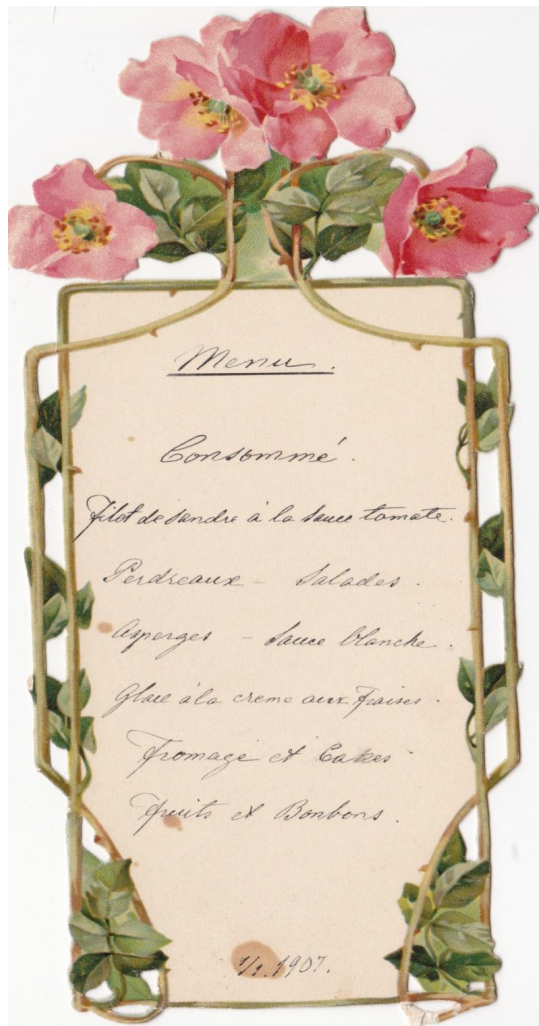 Menu.
Consommé.
Filet de sandre à la sauce tomate.
Perdreaux – Salades.
Asperges – Sauce blanche.
Glace à la creme aux fraises.
Fromage et Cakes
Fruits et Bonbons.
1/1.1907.